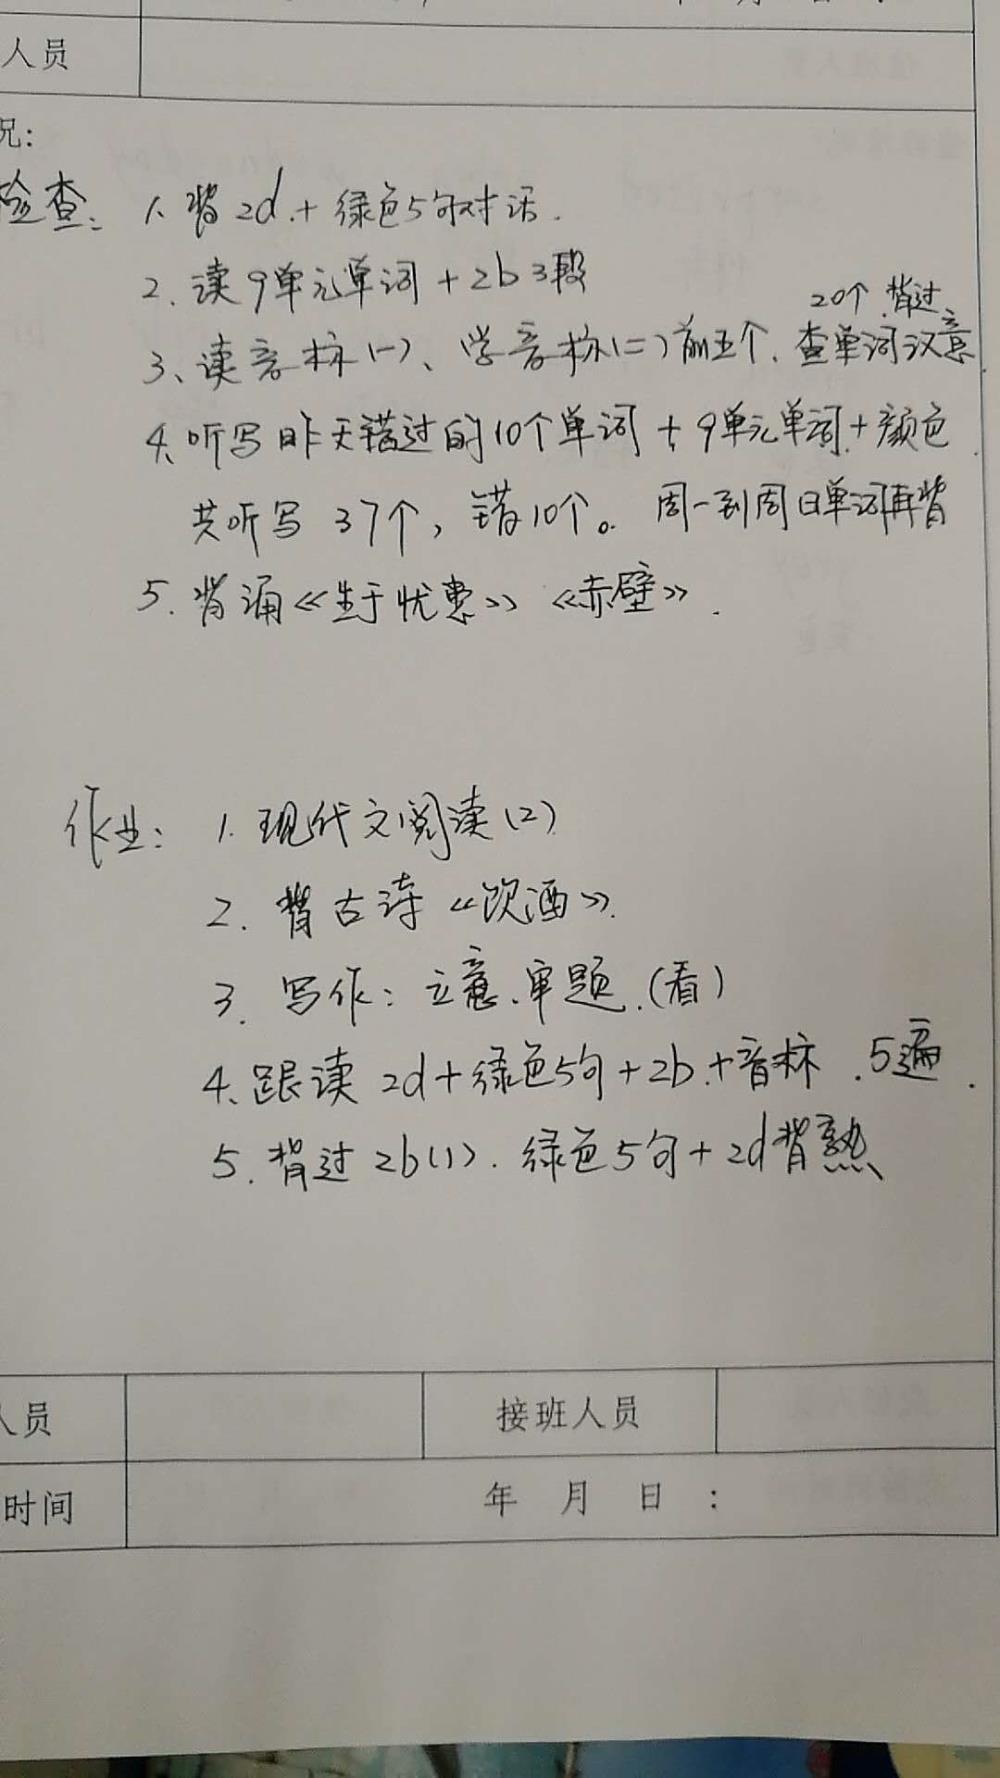 人员
况:
检查: 1. 背2d.+绿色5句对话.
2. 读9单元单词+2b 3段
20个.背过
3、读音标(一)、学音标(二)前五个.查单词汉意
4、听写昨天错过的10个单词+9单元单词+颜色.
共听写 37个, 错10个。周一到周日单词再背
5. 背诵《生于忧患》《赤壁》.
作业: 1. 现代文阅读(2)
2. 背古诗《饮酒》.
3. 写作: 立意.审题.(看)
4、跟读 2d+绿色5句+2b.+音标.5遍.
5. 背过2b(1). 绿色5句+2d背熟
人员 接班人员
时间 年 月 日 :